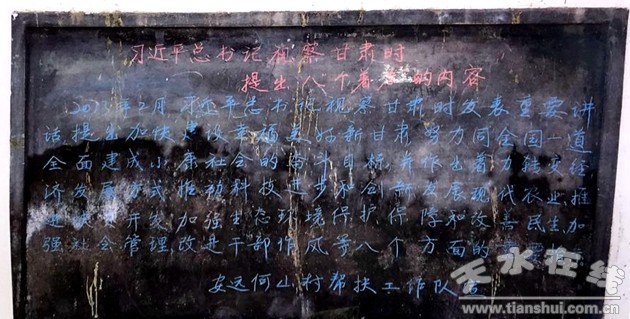 习近平总书记视察甘肃时
提出八个着落的内容
2013年2月习近平总书记视察甘肃时发表重要讲
话提出加快建设幸福美好新甘肃努力同全国一道
全面建成小康社会的奋斗目标并作出着力转变经
济发展方式推动科技进步和创新发展现代农业推
进扶贫开发加强生态环境保护保障和改善民生加
强社会管理改进干部作风等八个方面的重要
安远何山村帮扶工作队宣
天水在线
www.tianshui.com.cn